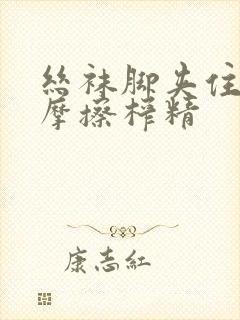 絲袜脚夹住
摩擦榨精
康志紅